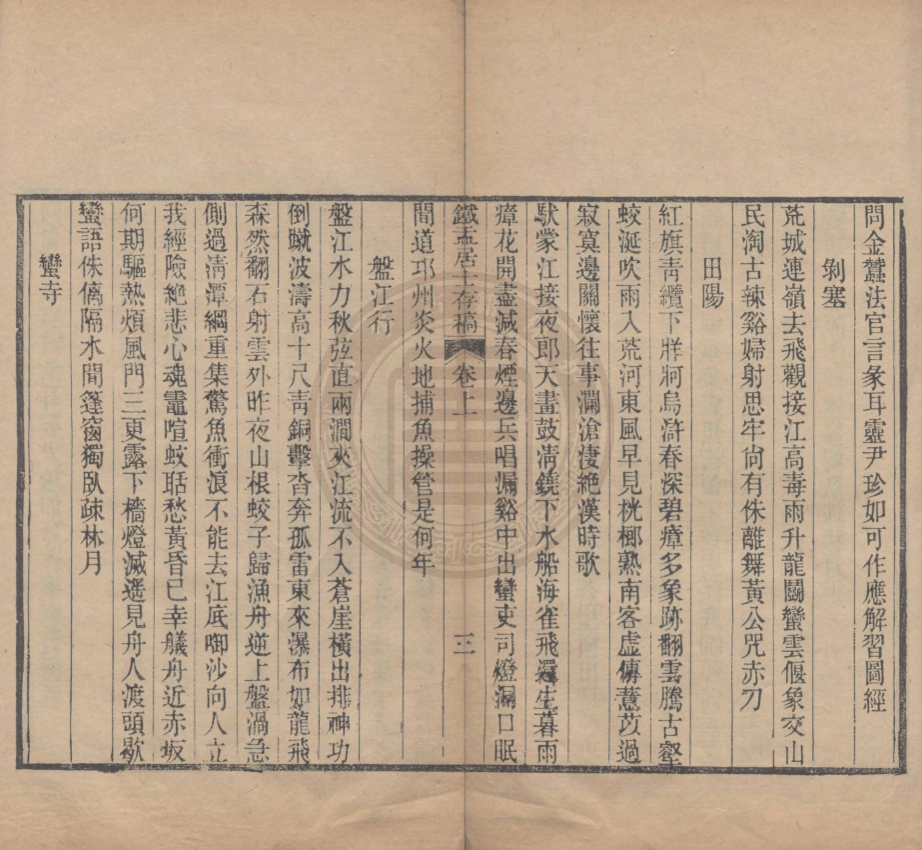 問金蠶法官言彖耳靈尹珍如可作應解習圖經
剝塞
荒城連嶺去飛觀接江高毒雨升龍鬭蠻雲偃象交山
民淘古辣谿婦射思牢尙有侏離舞黃公咒赤刀
田陽
紅旗靑纜下牂牁烏滸春深碧瘴多象跡翻雲騰古壑
蛟涎吹雨入荒河東風早見桄榔熟南客虛傳薏苡過
寂寞邊關懷往事瀾滄淒絕漢時歌
馱蒙江接夜郎天畫鼓淸鐃下水船海雀飛還生暮雨
瘴花開盡減春煙邊兵唱漏谿中出蠻吏司燈洞口眠
聞道邛州炎火地捕魚操管是何年
鐵盂居士存稿 卷上 三
盤江行
盤江水力秋弦直兩澗夾江流不入蒼崖橫出排神功
倒蹴波濤高十尺靑銅擊沓奔孤雷東來瀑布如龍飛
森然翻石射雲外昨夜山根蛟子歸漁舟逆上盤渦急
側過淸潭綱重集驚魚衝浪不能去江底啣沙向人立
我經險絕悲心魂鼉喧蚊聒愁黃昏已幸艤舟近赤坂
何期驅熱煩風門三更露下檣燈滅遥見舟人渡頭歇
蠻語侏僪隔水聞篷窗獨臥疎林月
蠻寺